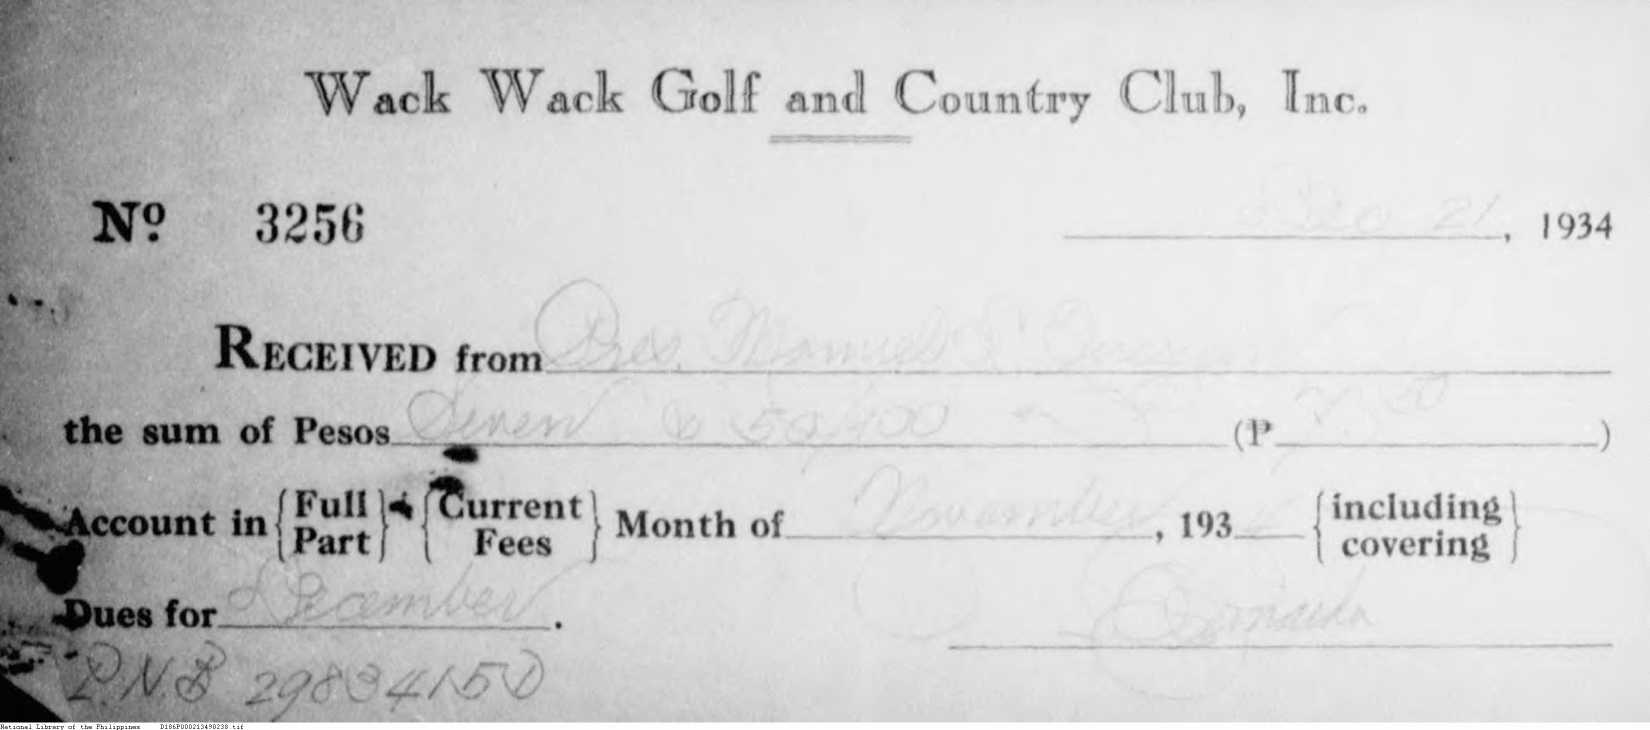 Wack Wack Golf and Country Club, Inc.
Nº 3256
Dec 21, 1934
RECEIVED from Pres. Manuel Quezon
the sum of Pesos Seven & 50/100 (₱ 7.50)
Account in {Full Part} {Current Fees} Month of November, 193 {including covering}
Dues for December.
P.N.B 2983415D
National Library of the Philippines